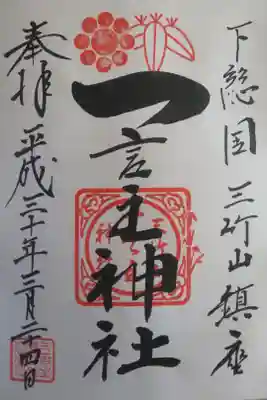 下総国 三竹山鎮座
一言主神社
奉拝 平成三十年三月二十四日